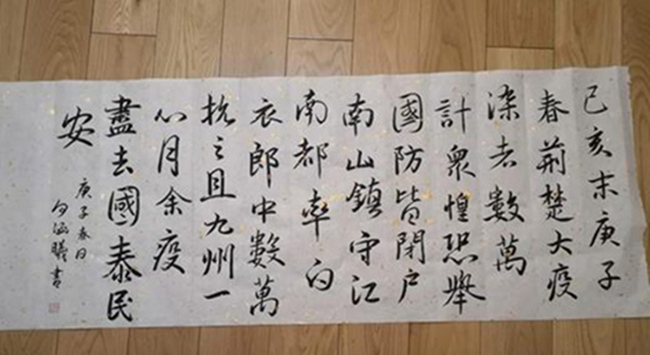 己亥末庚子
春荆楚大疫
染者數萬
計衆惶恐舉
國防皆閉户
南山鎮守江
南都率白
衣郎中數萬
抗之且九州一
心月余疫
盡去國泰民
安
庚子春日
曦書